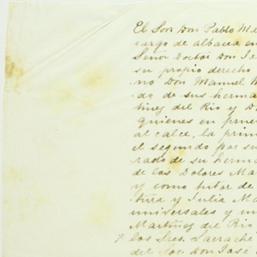 El Sor Don Pablo Ma
cargo de albacea en
Señor Doctor Don Je
su propio derecho
no Don Manuel M
do de sus herma
tinez del Rio y D
quienes en
al calce, la prim
el segundo por su
rado de su herm
de los Dolores Ma
y como tutor de
tura y Julia Ma
universales y un
Martinez del Rio
los Sres
del Sor. don José